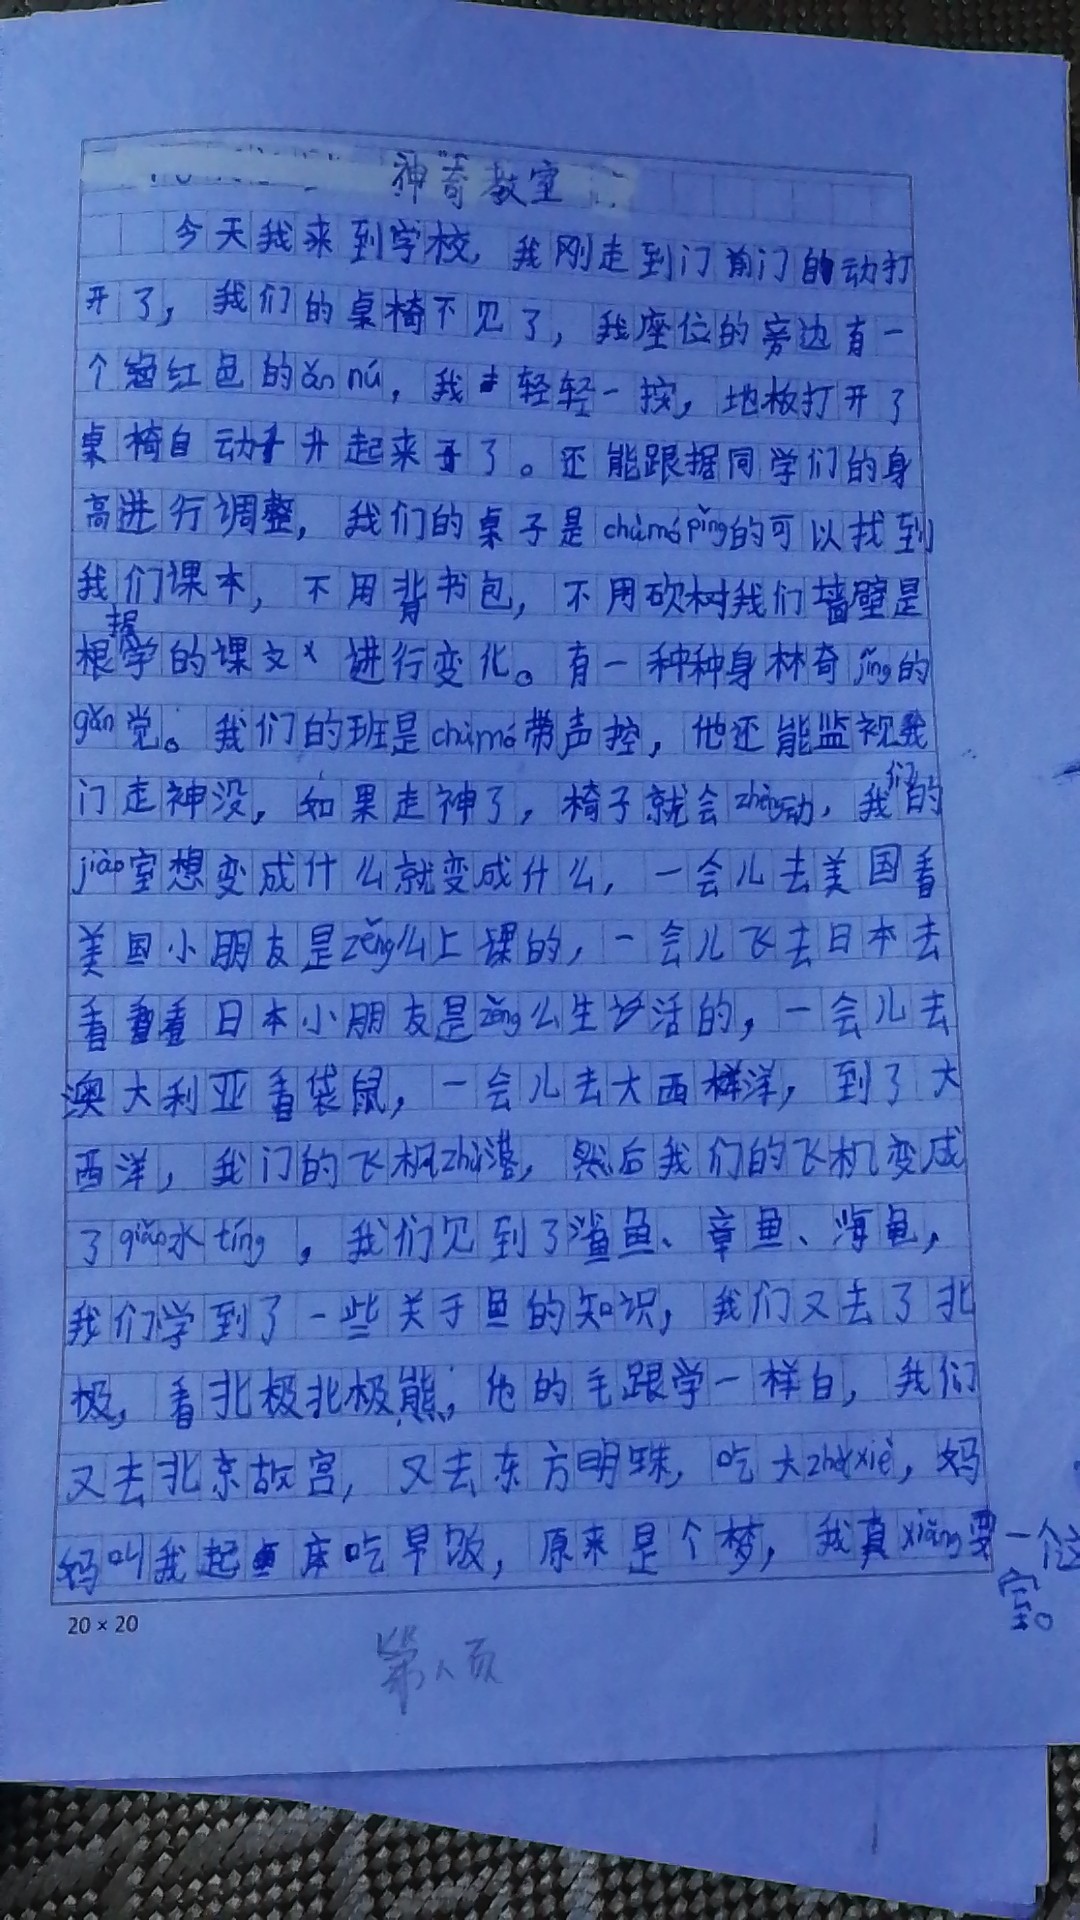 神奇教室
今天我来到学校，我刚走到门前门自动打
开了，我们的桌椅不见了，我座位的旁边有一
个红色的àn nú，我轻轻一按，地板打开了
桌椅自动升起来了。还能跟据同学们的身
高进行调整，我们的桌子是chùmó pǐng的可以找到
我们课本，不用背书包，不用砍树我们墙壁是
根据学的课文进行变化。有一种种身林奇jǐng的
gǎn觉。我们的班是chùmó带声控，他还能监视我
门走神没，如果走神了，椅子就会zhèng动，我们的
jiào室想变成什么就变成什么，一会儿去美国看
美国小朋友是zěng么上课的，一会儿飞去日本去
看看日本小朋友是zěng么生活的，一会儿去
澳大利亚看袋鼠，一会儿去大西洋，到了大
西洋，我门的飞机zhuó落，然后我们的飞机变成
了qiǎo水tíng，我们见到了鲨鱼、章鱼、海龟，
我们学到了一些关于鱼的知识，我们又去了北
极，看北极北极熊，他的毛跟学一样白，我们
又去北京故宫，又去东方明珠，吃大zhá xiè，妈
妈叫我起床吃早饭，原来是个梦，我真xiǎng要一个这
室。
20×20
第 页